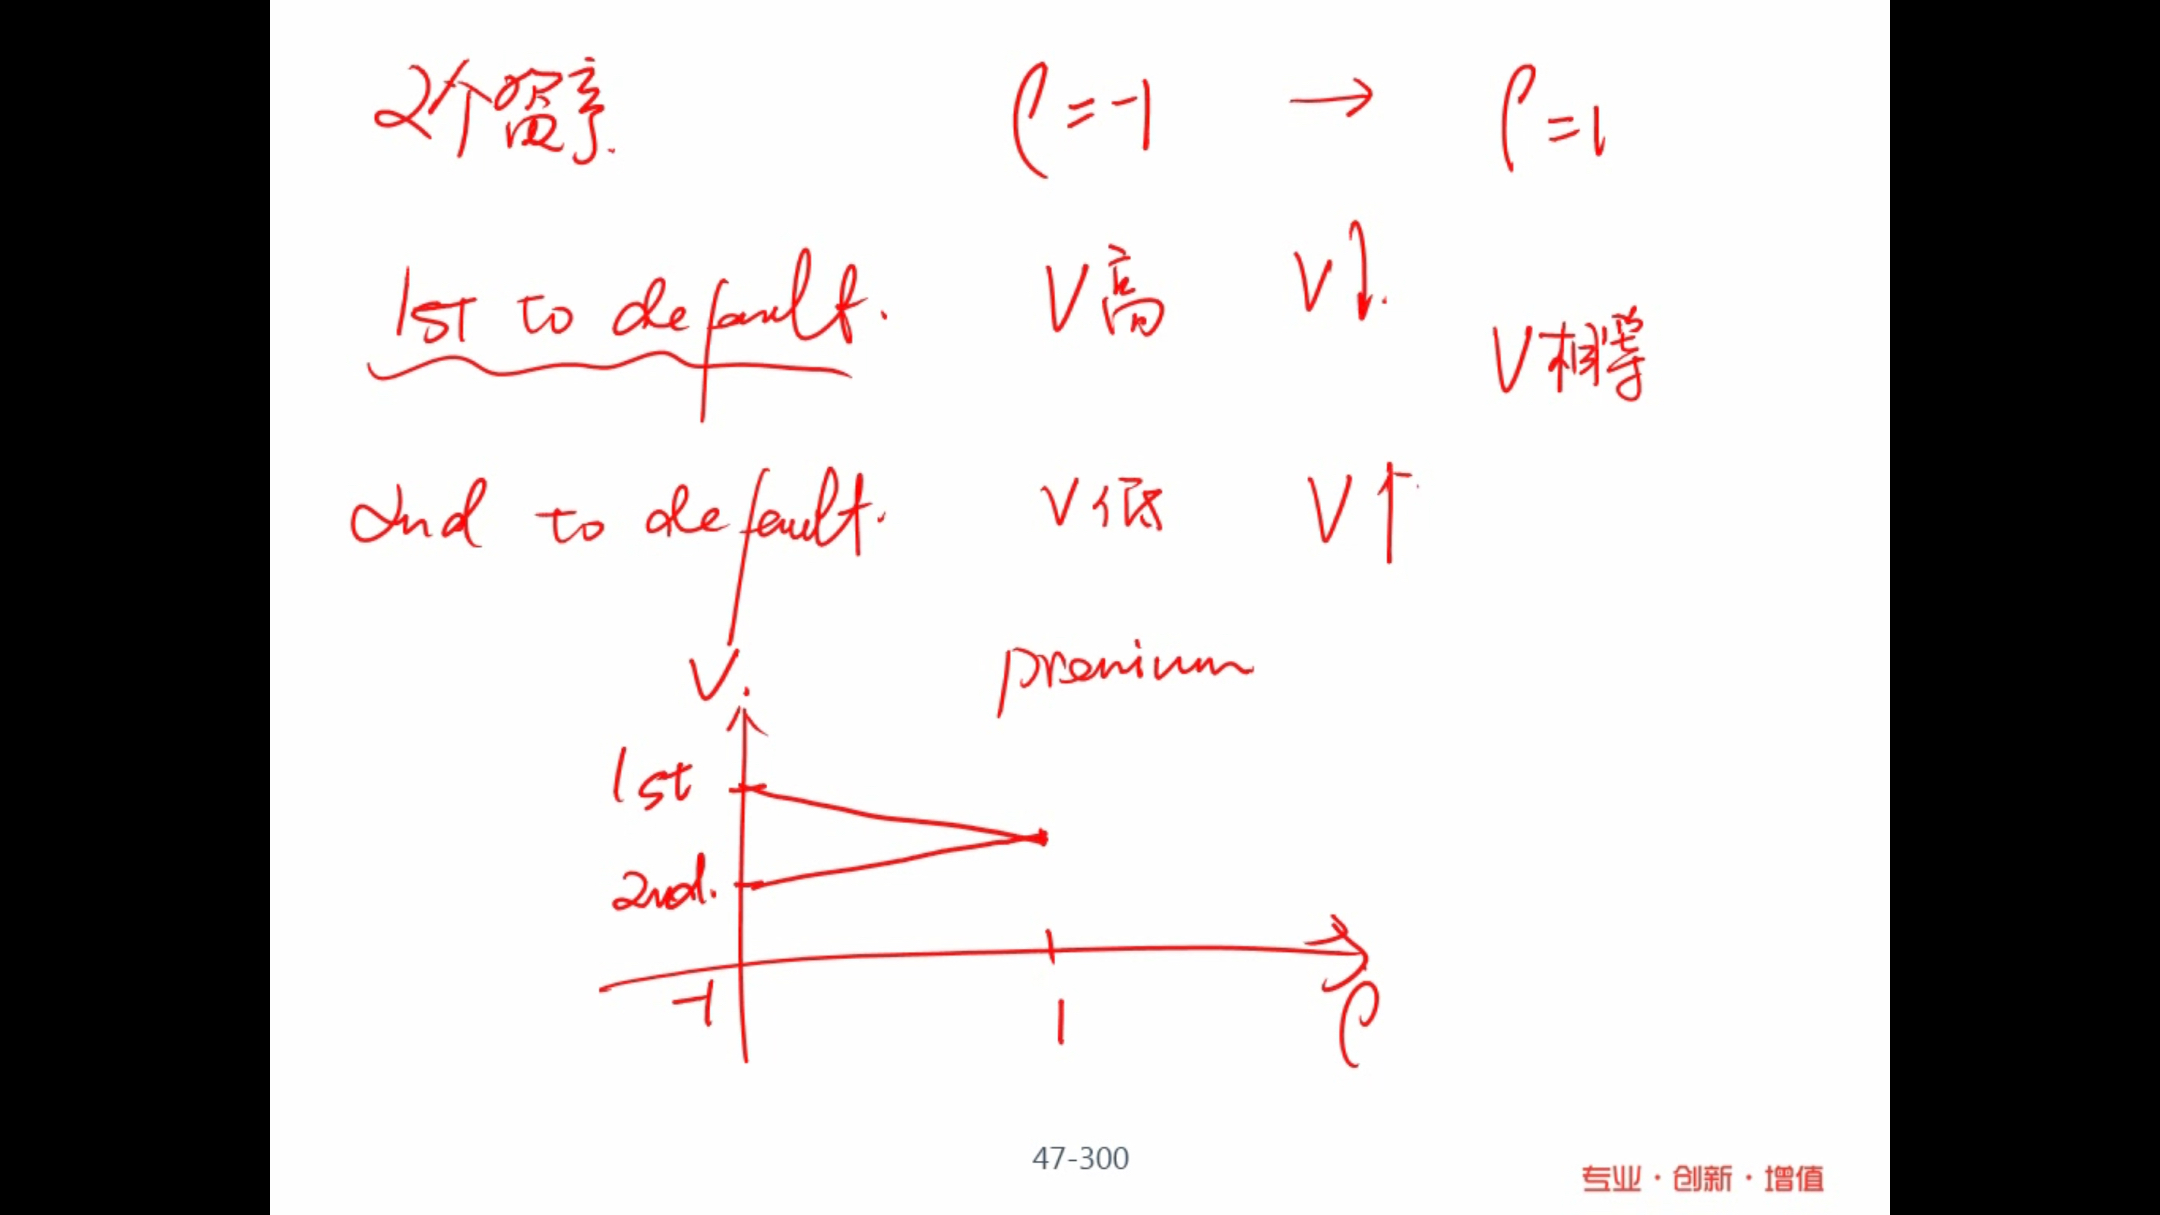 2个资产.
ρ=-1 → ρ=1
1st to default. V高 V↓.
V相等
2nd to default. V低 V↑
V. premium
1st
2nd.
-1 1 ρ
47-300
专业·创新·增值